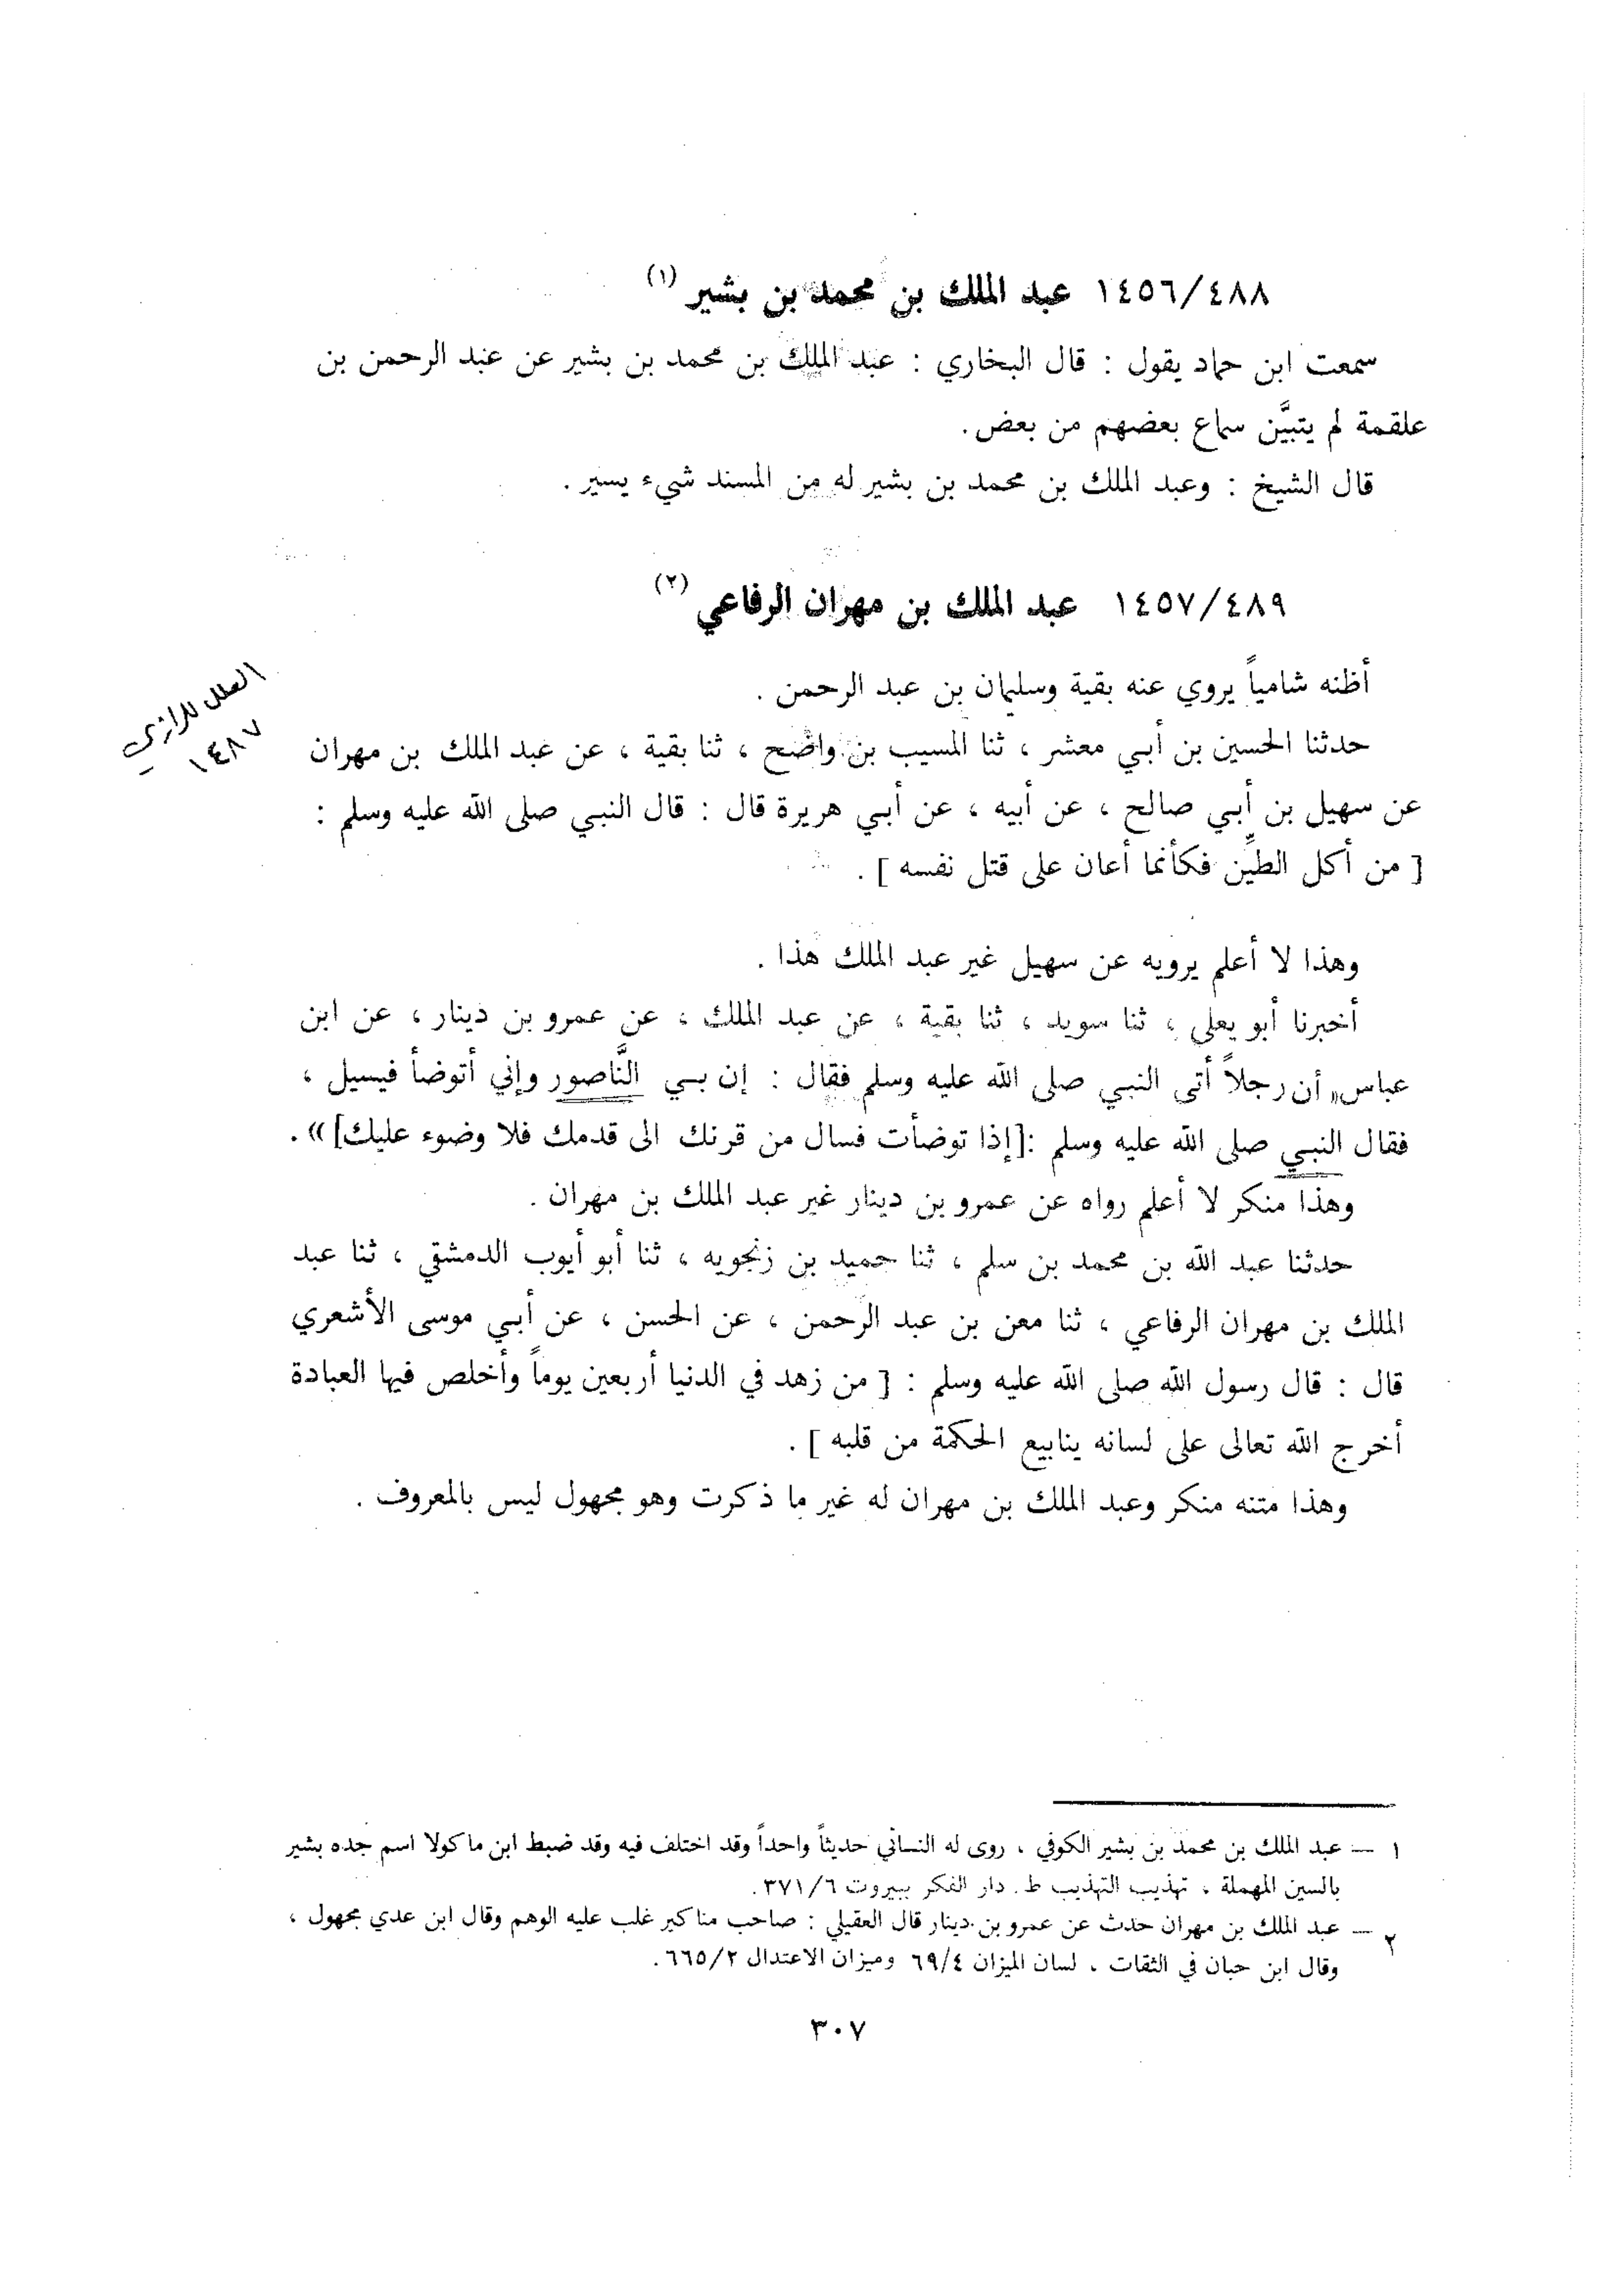 ١٤٥٦/٤٨٨ عبد الملك بن محمد بن بشير (١)
سمعت ابن حماد يقول : قال البخاري : عبد الملك بن محمد بن بشير عن عبد الرحمن بن
علقمة لم يتبيَّن سماع بعضهم من بعض .
قال الشيخ : وعبد الملك بن محمد بن بشير له من المسند شيء يسير .
١٤٥٧/٤٨٩ عبد الملك بن مهران الرفاعي (٢)
أظنه شامياً يروي عنه بقية وسليمان بن عبد الرحمن .
العلل للرازي
١٤٨٧
حدثنا الحسين بن أبي معشر ، ثنا المسيب بن واضح ، ثنا بقية ، عن عبد الملك بن مهران
عن سهيل بن أبي صالح ، عن أبيه ، عن أبي هريرة قال : قال النبي صلى الله عليه وسلم :
[ من أكل الطيِّن فكأنما أعان على قتل نفسه ] .
وهذا لا أعلم يرويه عن سهيل غير عبد الملك هذا .
أخبرنا أبو يعلى ، ثنا سويد ، ثنا بقية ، عن عبد الملك ، عن عمرو بن دينار ، عن ابن
عباس (( أن رجلاً أتى النبي صلى الله عليه وسلم فقال : إن بي النَّاصور وإني أتوضأ فيسيل ،
فقال النبي صلى الله عليه وسلم :[إذا توضأت فسال من قرنك الى قدمك فلا وضوء عليك] )) .
وهذا منكر لا أعلم رواه عن عمرو بن دينار غير عبد الملك بن مهران .
حدثنا عبد الله بن محمد بن سلم ، ثنا حميد بن زنجويه ، ثنا أبو أيوب الدمشقي ، ثنا عبد
الملك بن مهران الرفاعي ، ثنا معن بن عبد الرحمن ، عن الحسن ، عن أبي موسى الأشعري
قال : قال رسول الله صلى الله عليه وسلم : [ من زهد في الدنيا أربعين يوماً وأخلص فيها العبادة
أخرج الله تعالى على لسانه ينابيع الحكمة من قلبه ] .
وهذا متنه منكر وعبد الملك بن مهران له غير ما ذكرت وهو مجهول ليس بالمعروف .
١ — عبد الملك بن محمد بن بشير الكوفي ، روى له النسائي حديثاً واحداً وقد اختلف فيه وقد ضبط ابن ماكولا اسم جده بشير
بالسين المهملة ، تهذيب التهذيب ط. دار الفكر ببيروت ٣٧١/٦.
٢ — عبد الملك بن مهران حدث عن عمرو بن دينار قال العقيلي : صاحب مناكير غلب عليه الوهم وقال ابن عدي مجهول ،
وقال ابن حبان في الثقات ، لسان الميزان ٦٩/٤ وميزان الاعتدال ٦٦٥/٢ .
٣٠٧